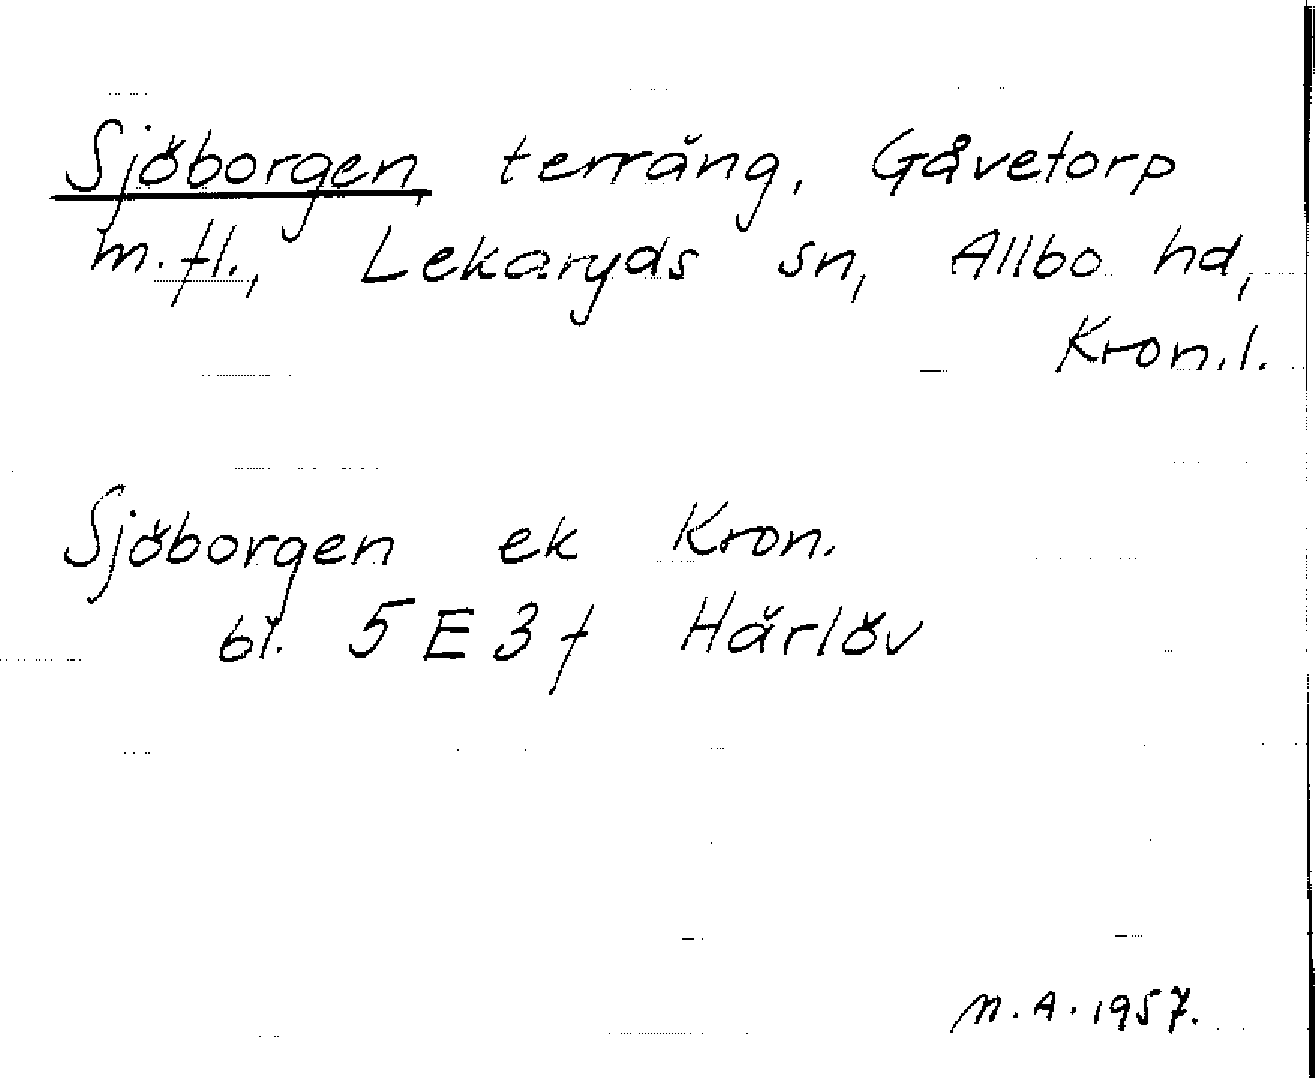 Sjöborgen, terräng, Gåvetorp
m. fl., Lekaryds sn, Allbo hd,
Kron. l.
Sjöborgen ek Kron.
bl. 5 E 3 f Härlöv
N. A. 1957.